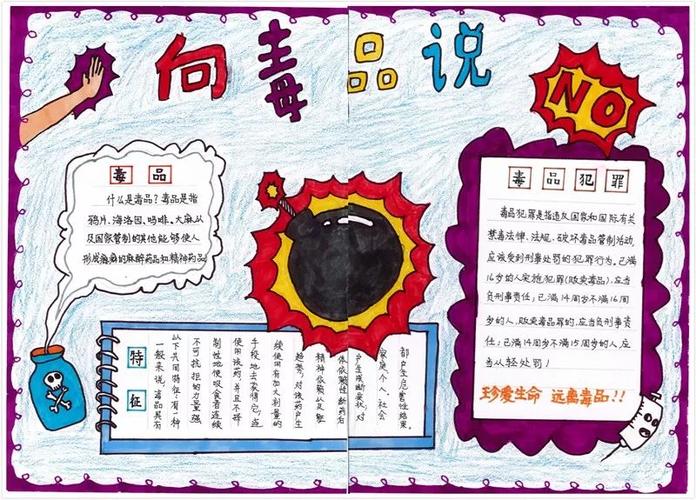 向毒品说
NO
毒品
什么是毒品?毒品是指
鸦片、海洛因、吗啡、大麻以
及国家管制的其他能够使人
形成瘾癖的麻醉药品和精神药品
毒品犯罪
毒品犯罪是指违反国家和国际有关
禁毒法律、法规,破坏毒品管制活动,
应该受到刑事处罚的犯罪行为。已满
16岁的人实施犯罪(贩卖毒品),应当
负刑事责任;已满14周岁不满16周
岁的人,贩卖毒品罪的,应当负刑事责
任;已满14周岁不满15周岁的人,应
当从轻处罚!
珍爱生命 远离毒品!!
特征
一般来说,毒品具有
以下共同特征:有一种
不可抗拒的力量强
制性地使吸食者连续
使用该药,并且不择
手段地去获得它;连
续使用有加大剂量的
趋势;对该药产生
精神依赖以及躯
体依赖性,断药后
产生戒断症状;对
家庭、个人、社会
都产生危害性结果。